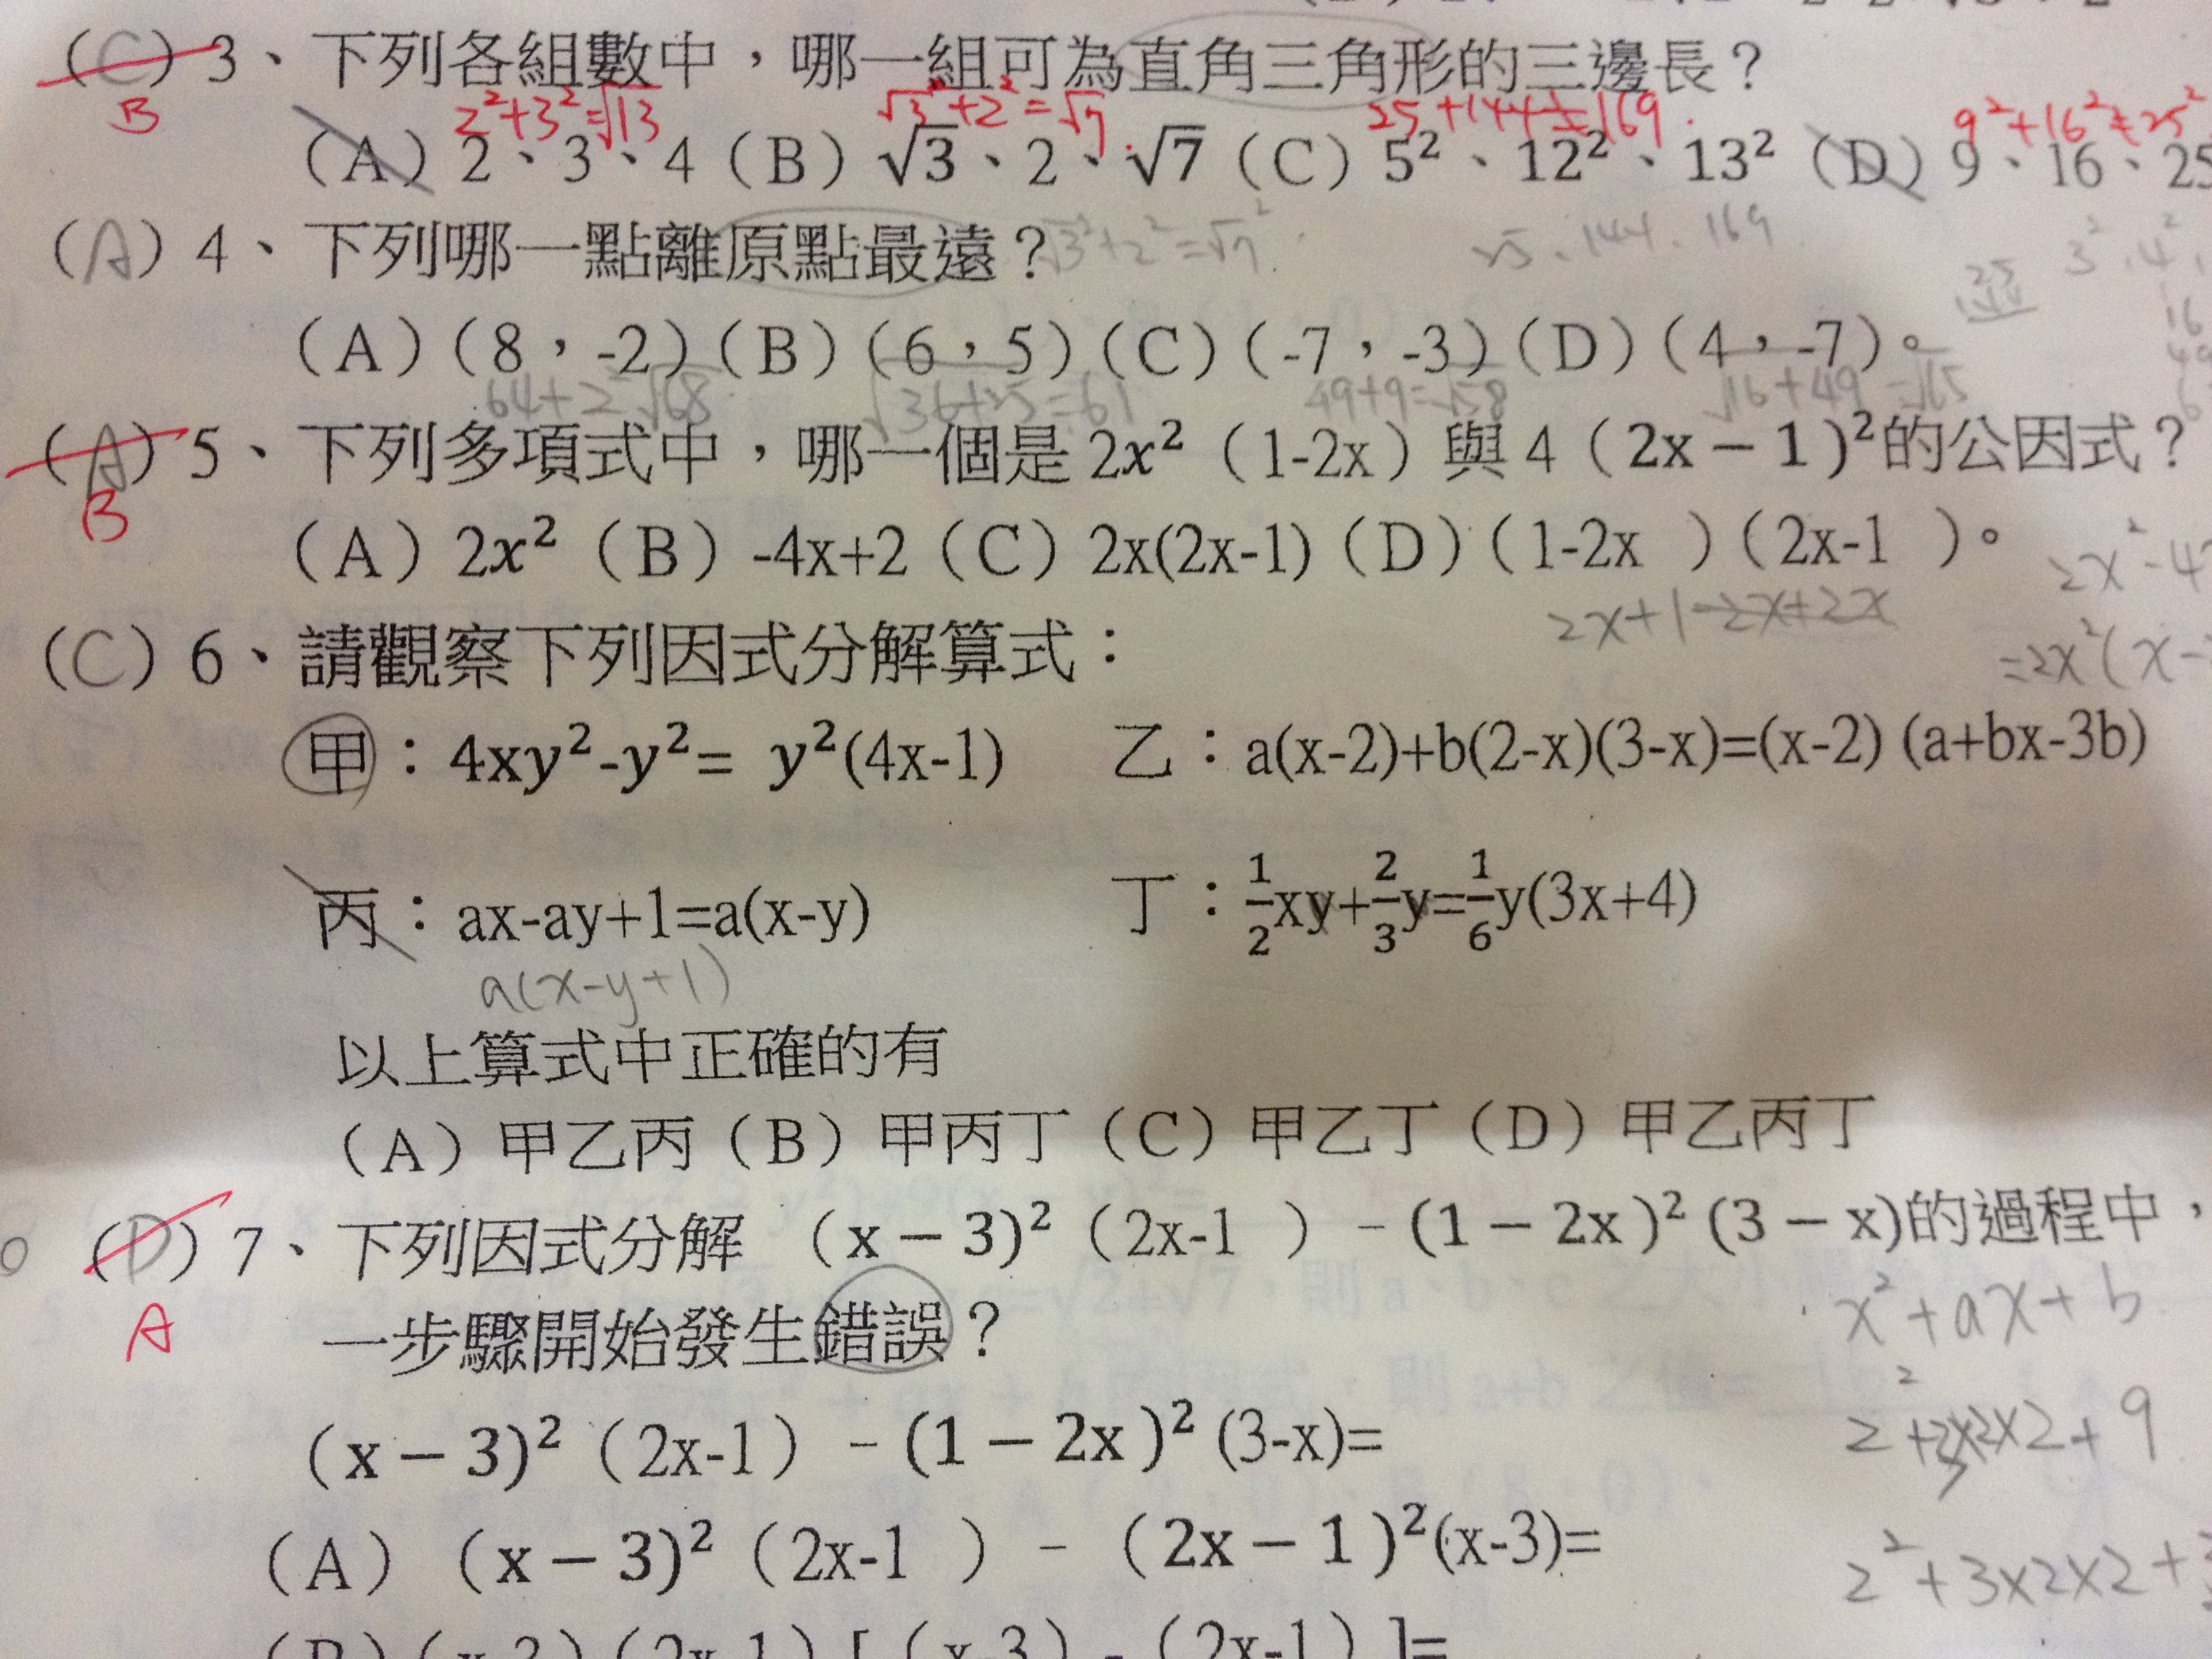 (C) 3、下列各組數中，哪一組可為直角三角形的三邊長？
B 2²+3²=√13 √3²+2²=√7 25+144≠169 9²+16²≠25²
(A) 2、3、4 (B) √3、2、√7 (C) 5²、12²、13² (D) 9、16、25
(A) 4、下列哪一點離原點最遠？
√3²+2²=√7² 25、144、169 3²、4²
(A)(8，-2)(B)(6，5)(C)(-7，-3)(D)(4，-7)。
64+2²√68 √36+25=61 49+9=√58 √16+49=√65
(A) 5、下列多項式中，哪一個是 2x² (1-2x) 與 4 (2x－1)²的公因式？
B
(A) 2x² (B) -4x+2 (C) 2x(2x-1) (D) (1-2x ) (2x-1 )。
2x+1-2x+2x 2x²-4
(C) 6、請觀察下列因式分解算式：
=2x²(x-
甲：4xy²-y²= y²(4x-1) 乙：a(x-2)+b(2-x)(3-x)=(x-2) (a+bx-3b)
丙：ax-ay+1=a(x-y) 丁：1/2xy+2/3y=1/6y(3x+4)
a(x-y+1)
以上算式中正確的有
(A) 甲乙丙 (B) 甲丙丁 (C) 甲乙丁 (D) 甲乙丙丁
(D) 7、下列因式分解 (x－3)² (2x-1 ) - (1－2x)² (3－x)的過程中，
A
一步驟開始發生錯誤？
x²+ax+b
(x－3)² (2x-1) - (1－2x)² (3-x)=
(A) (x－3)² (2x-1 ) - (2x－1)²(x-3)=
2²+3x2x2+
(B)(x-3)(2x-1)[(x-3)-(2x-1)]=